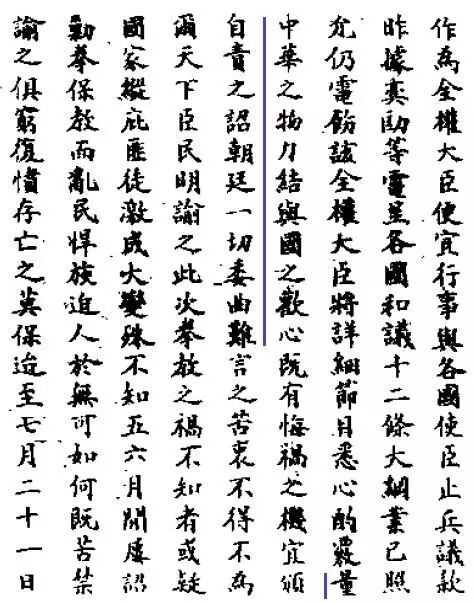 作為全權大臣便宜行事與各國使臣止兵議款
昨據奕劻等電呈各國和議十二條大綱業已照
允仍電飭該全權大臣將詳細節目悉心酌覈量
中華之物力結與國之歡心既有悔禍之機宜頒
自責之詔朝廷一切委曲難言之苦衷不得不為
爾天下臣民明諭之此次拳教之禍不知者或疑
國家縱庇匪徒激成大變殊不知五六月間屢詔
勦拳保教而亂民悍族迫人於無可如何既苦禁
諭之俱窮復憤存亡之莫保迨至七月二十一日